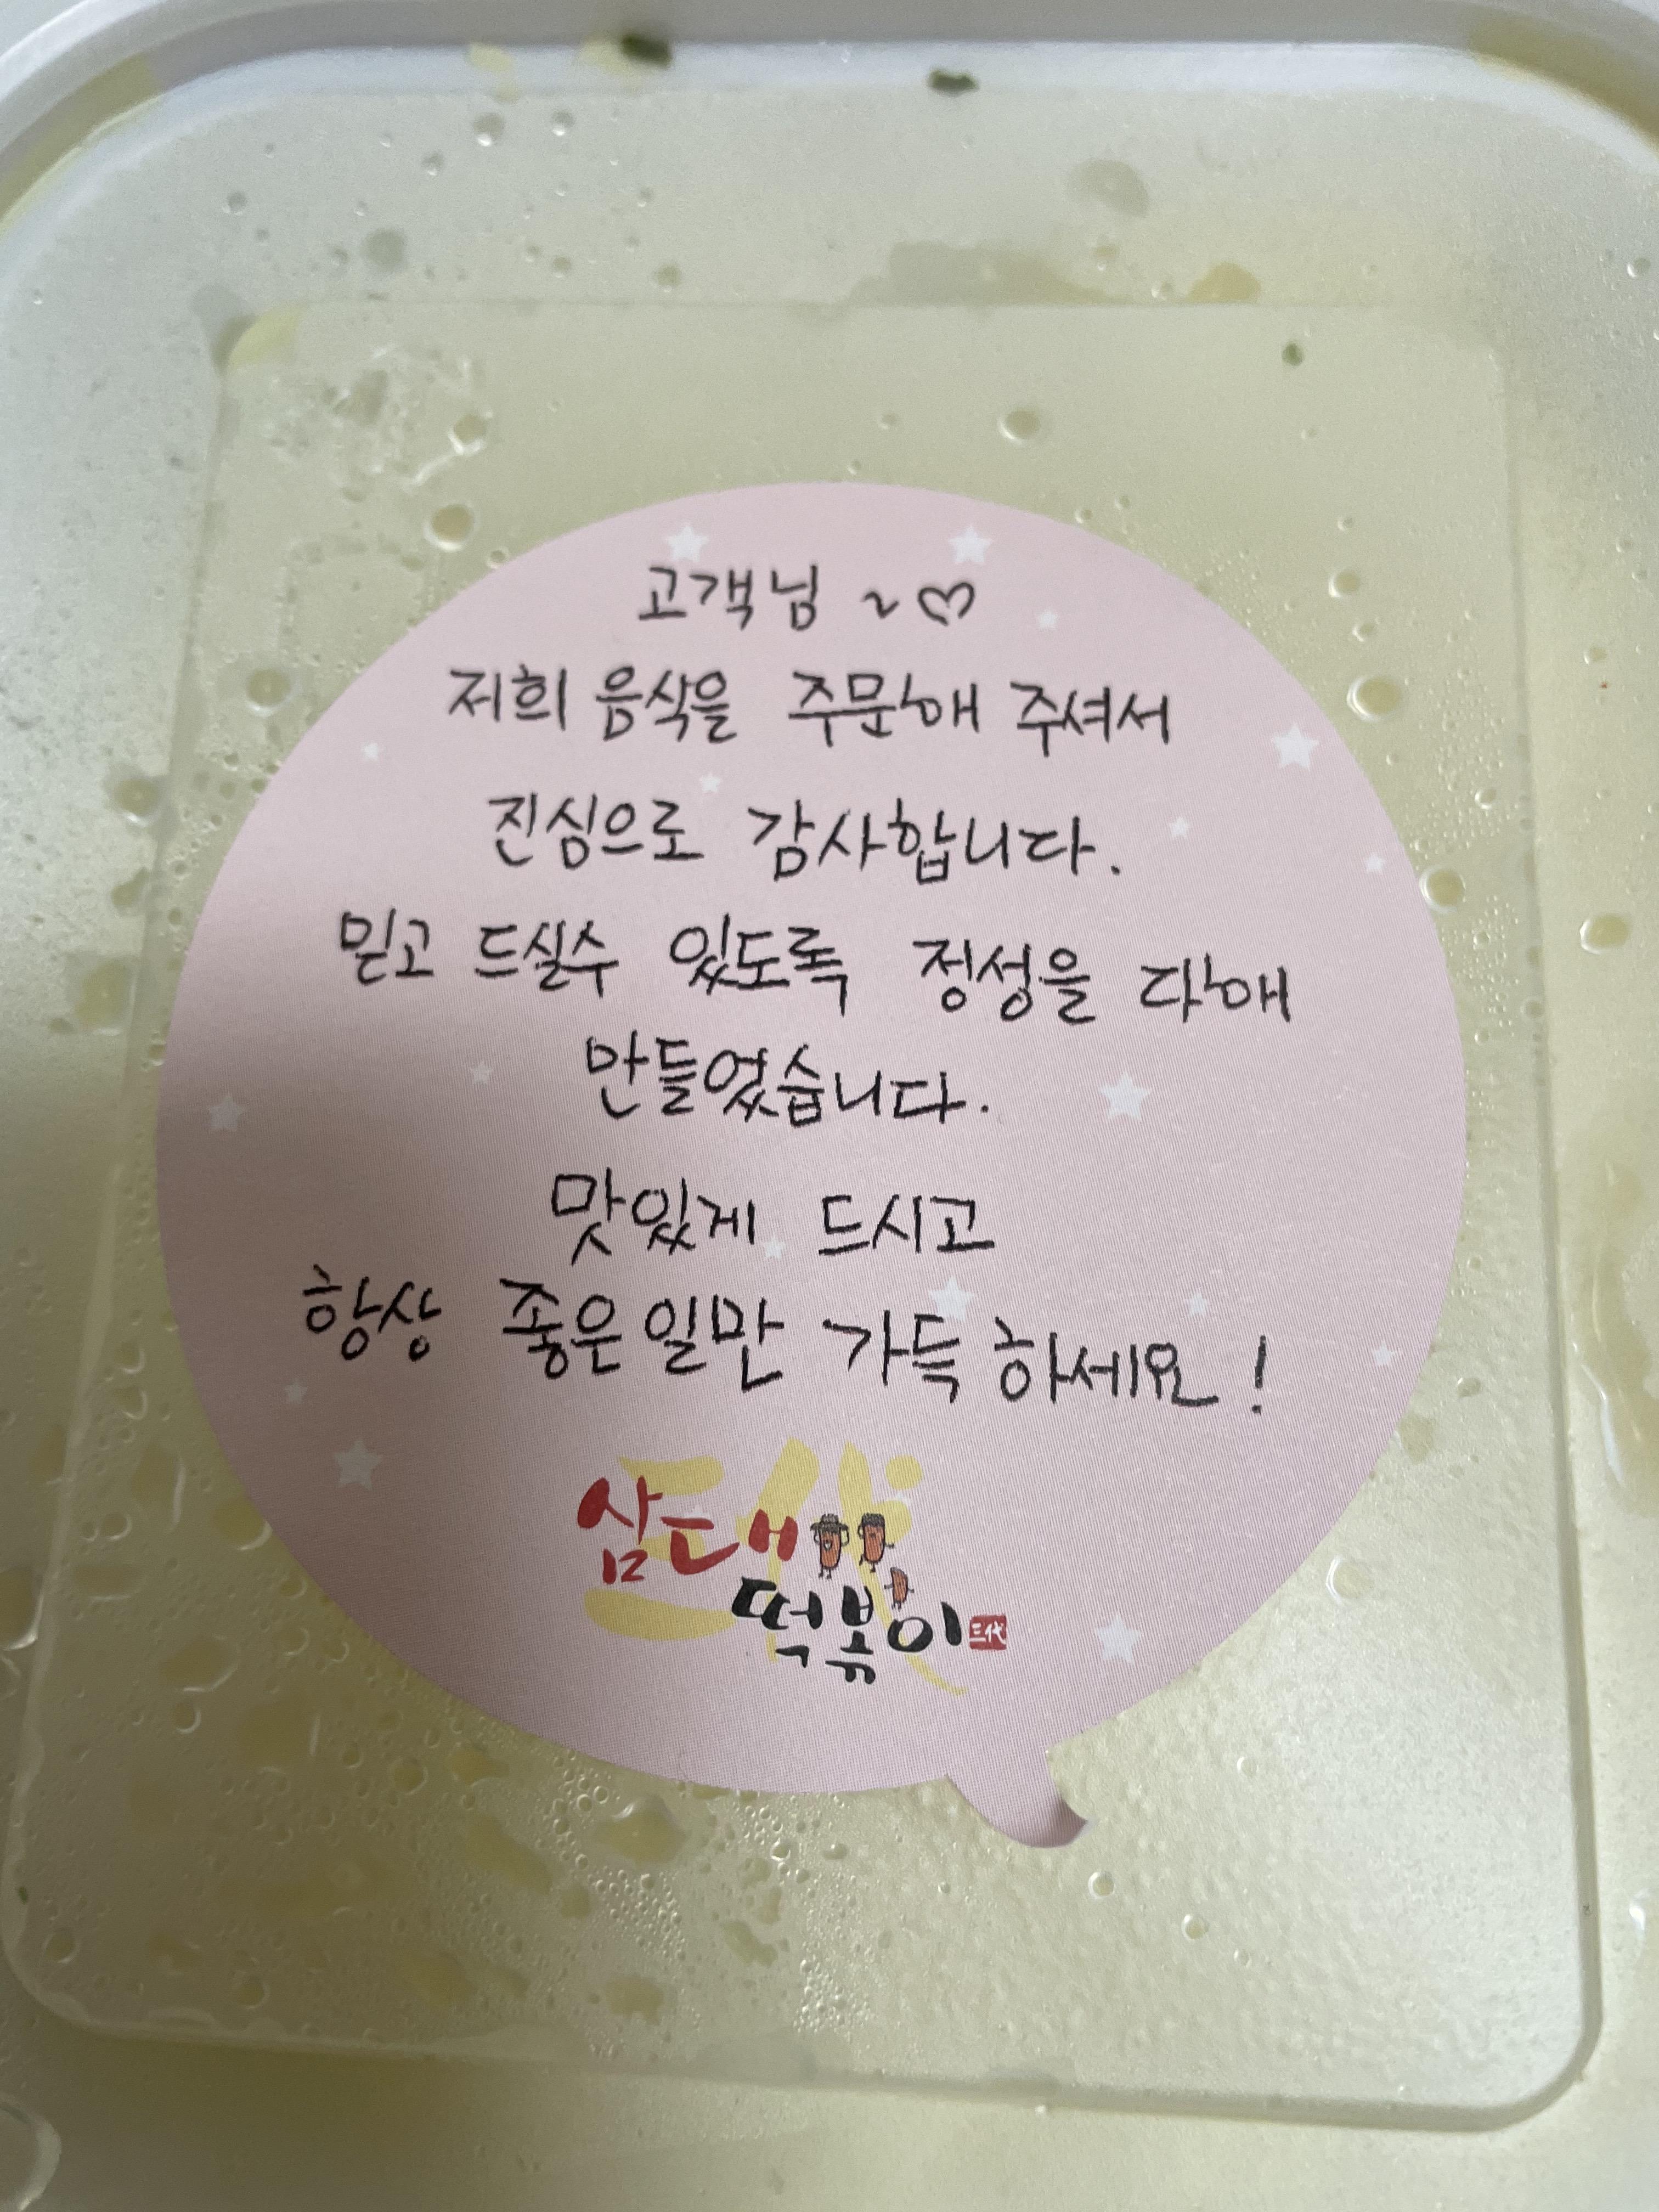 고객님 ~♡
저희 음식을 주문해 주셔서
진심으로 감사합니다.
믿고 드실수 있도록 정성을 다해
만들었습니다.
맛있게 드시고
항상 좋은일만 가득하세요!
삼대
떡볶이 三代